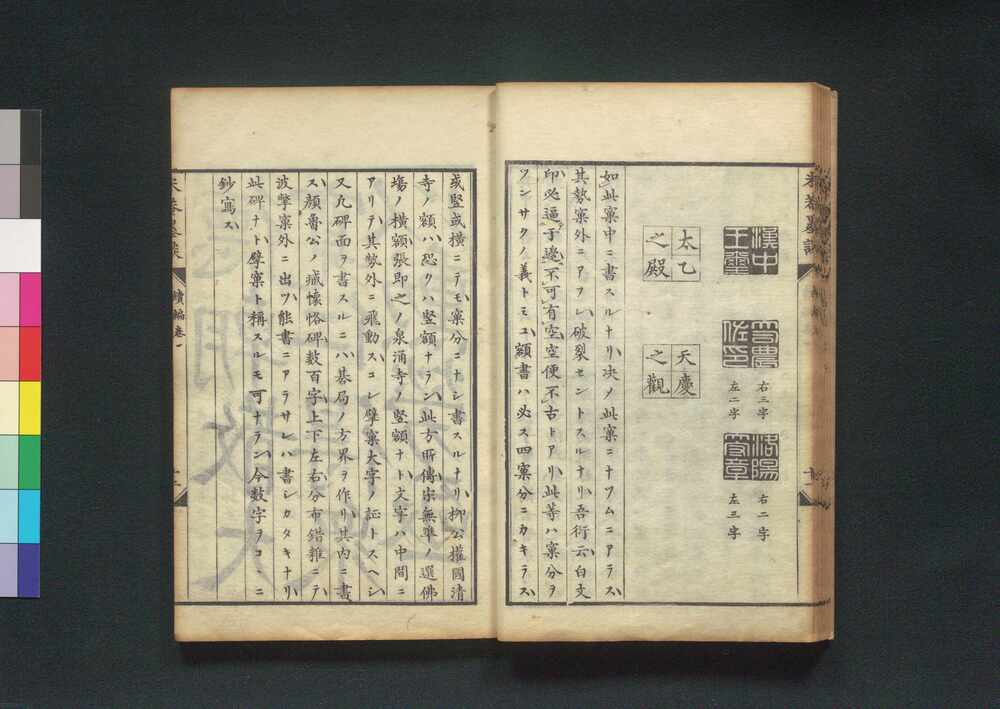 米菴墨談
漢中
王璽
右三字
左二字
洛陽
右二字
左三字
太乙
之殿
天慶
之觀
如此窠中ニ書スルナリ决ノ此窠ニナフムニアラス
其勢窠外ニアフレ破裂セントスルナリ吾衍云白文
印必逼于邊不可有空空便不古トアリ此等ハ窠分ヲ
ツンサクノ義トミユ額書ハ必ス四窠分ニカキラス
或竪或横ニテモ窠分ニナシ書スルナリ柳公權國清
寺ノ額ハ恐クハ竪額ナラン此方所傳宋無準ノ選佛
塲ノ横額張即之ノ泉涌寺ノ竪額ナト文字ハ中間ニ
アリテ其勢外ニ飛動スコレ擘窠大字ノ証トスヘシ
又凡碑面ヲ書スルニハ碁局ノ方界ヲ作リ其内ニ書
ス顔魯公ノ臧懷恪碑数百字上下左右分布錯雜ニテ
波撃窠外ニ出ツ能書ニアラサレハ書シカタキナリ
此碑ナト擘窠ト稱スルモ可ナラン今数字ヲコヽニ
鈔寫ス
米菴墨談
續編卷一